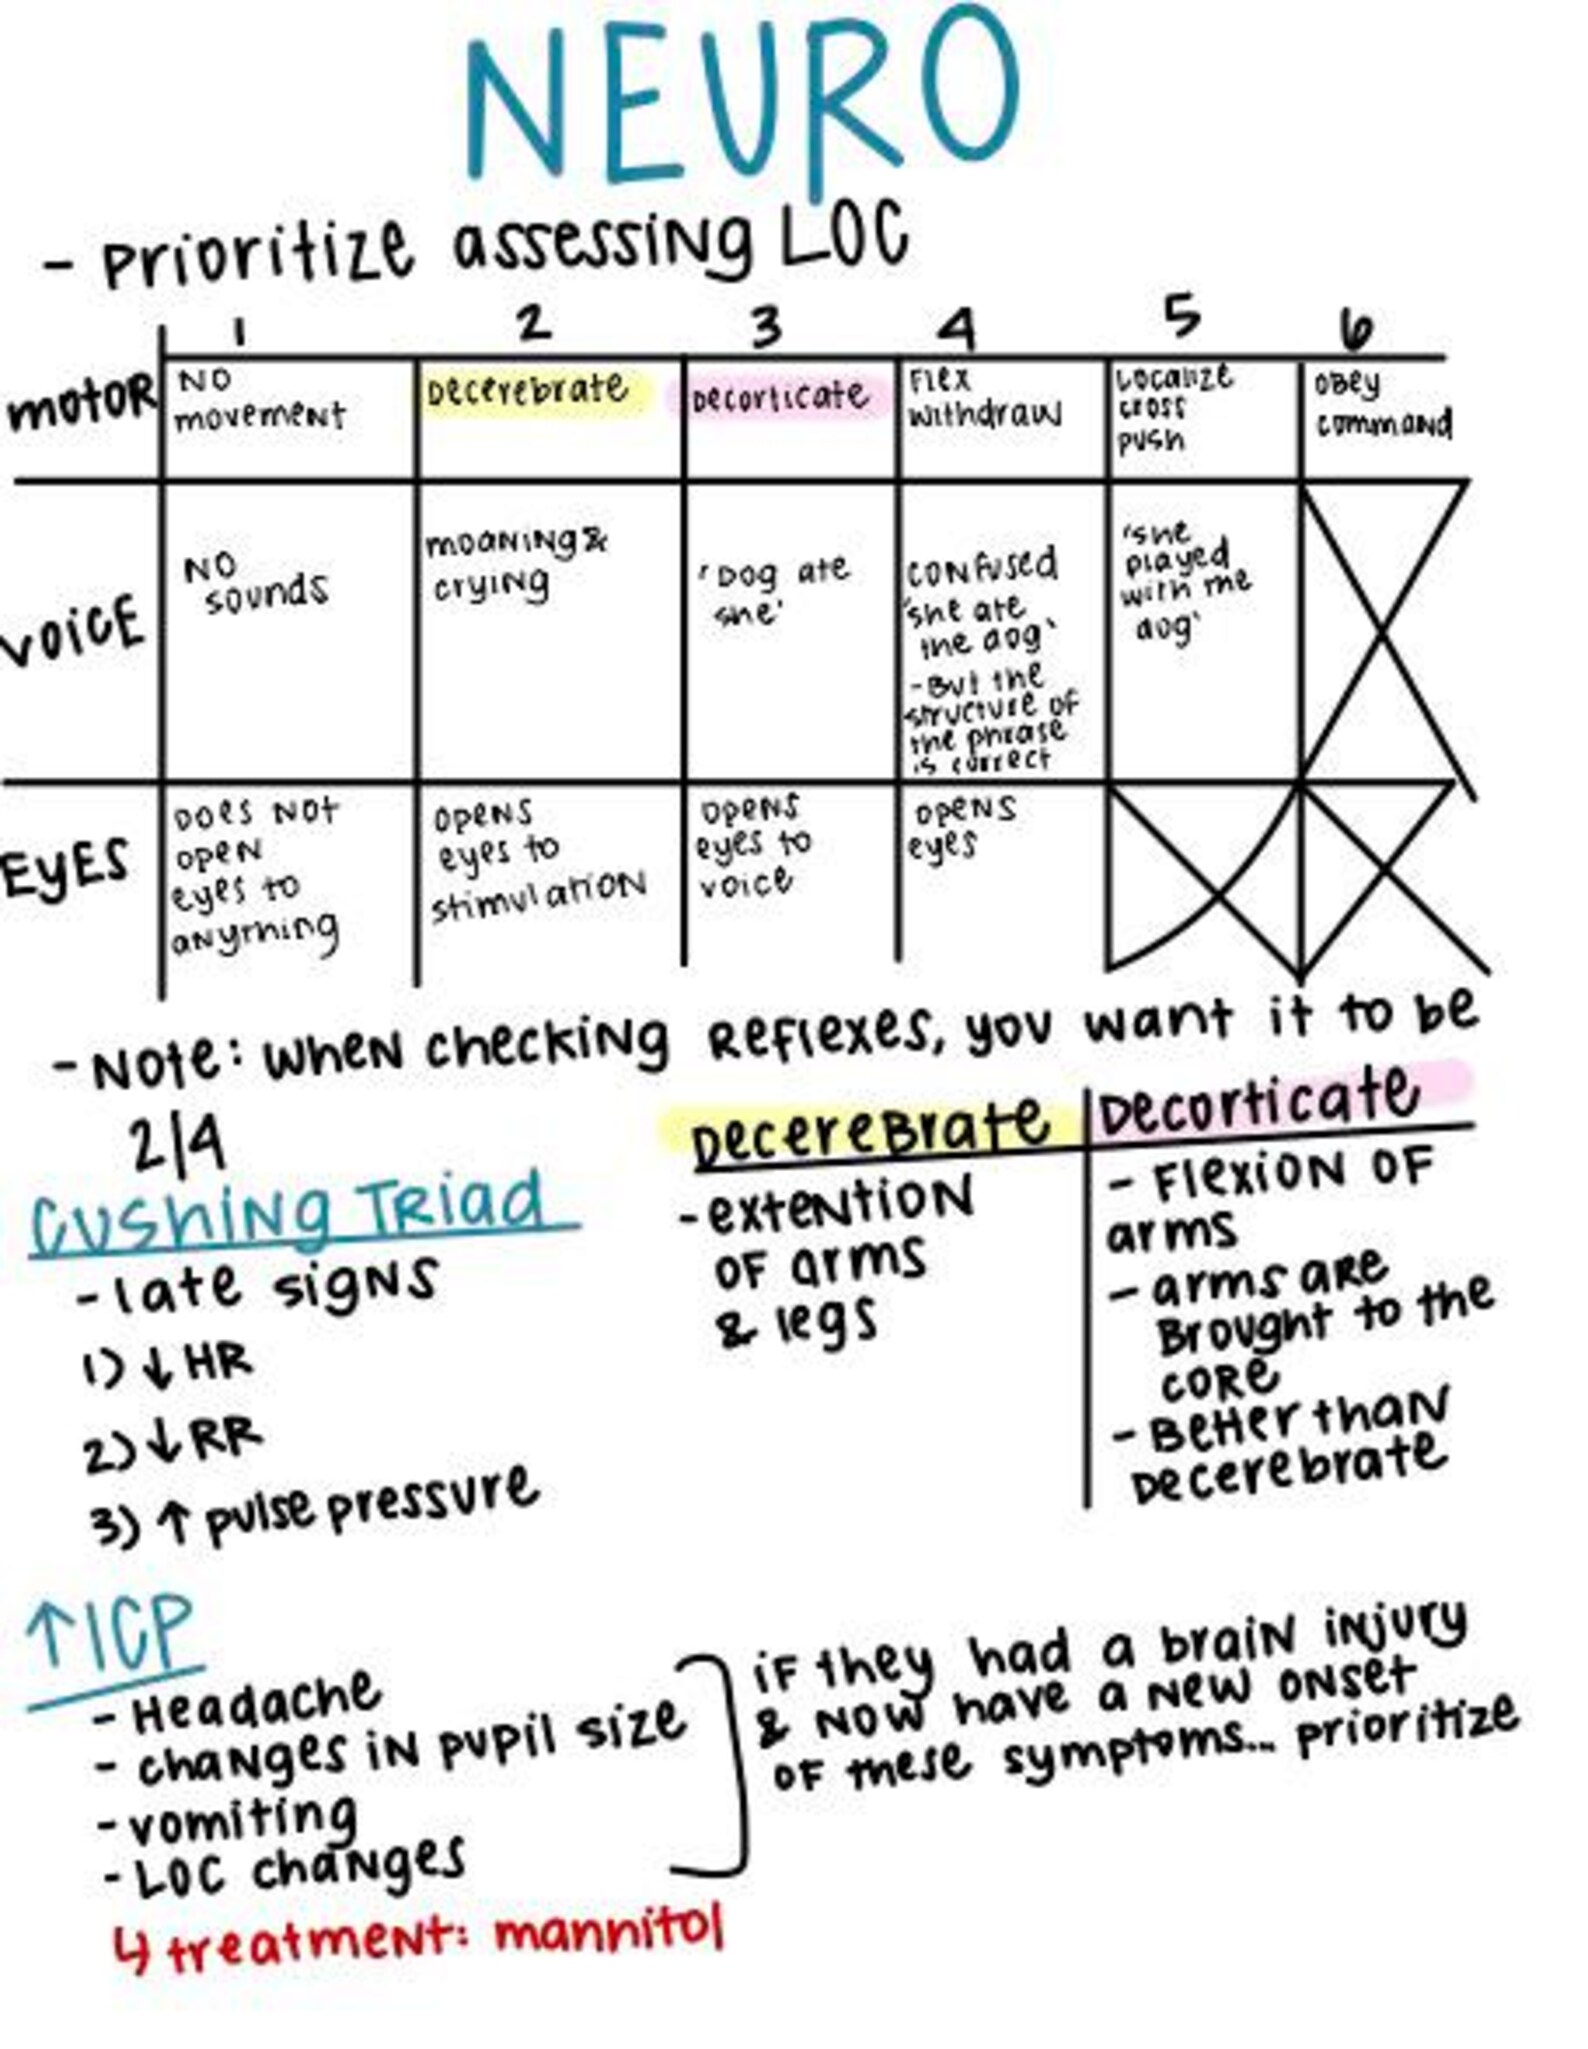 NEURO
- Prioritize assessing LOC
1 2 3 4 5 6
motor
No
movement
Decerebrate
Decorticate
Flex
withdraw
Localize
cross
push
obey
command
voice
No
sounds
moaning &
crying
'Dog ate
she'
confused
'she ate
the dog'
- But the
structure of
the phrase
is correct
'she
played
with the
dog'
Eyes
Does not
open
eyes to
anything
opens
eyes to
stimulation
opens
eyes to
voice
opens
eyes
- Note: when checking Reflexes, you want it to be
2/4
Cushing Triad
- late signs
1) ↓ HR
2) ↓ RR
3) ↑ pulse pressure
Decerebrate
- extention
of arms
& legs
Decorticate
- Flexion of
arms
- arms are
Brought to the
core
- Better than
Decerebrate
↑ICP
- Headache
- changes in pupil size
- vomiting
- LOC changes
↳ treatment: mannitol
if they had a brain injury
& now have a new onset
of these symptoms... prioritize